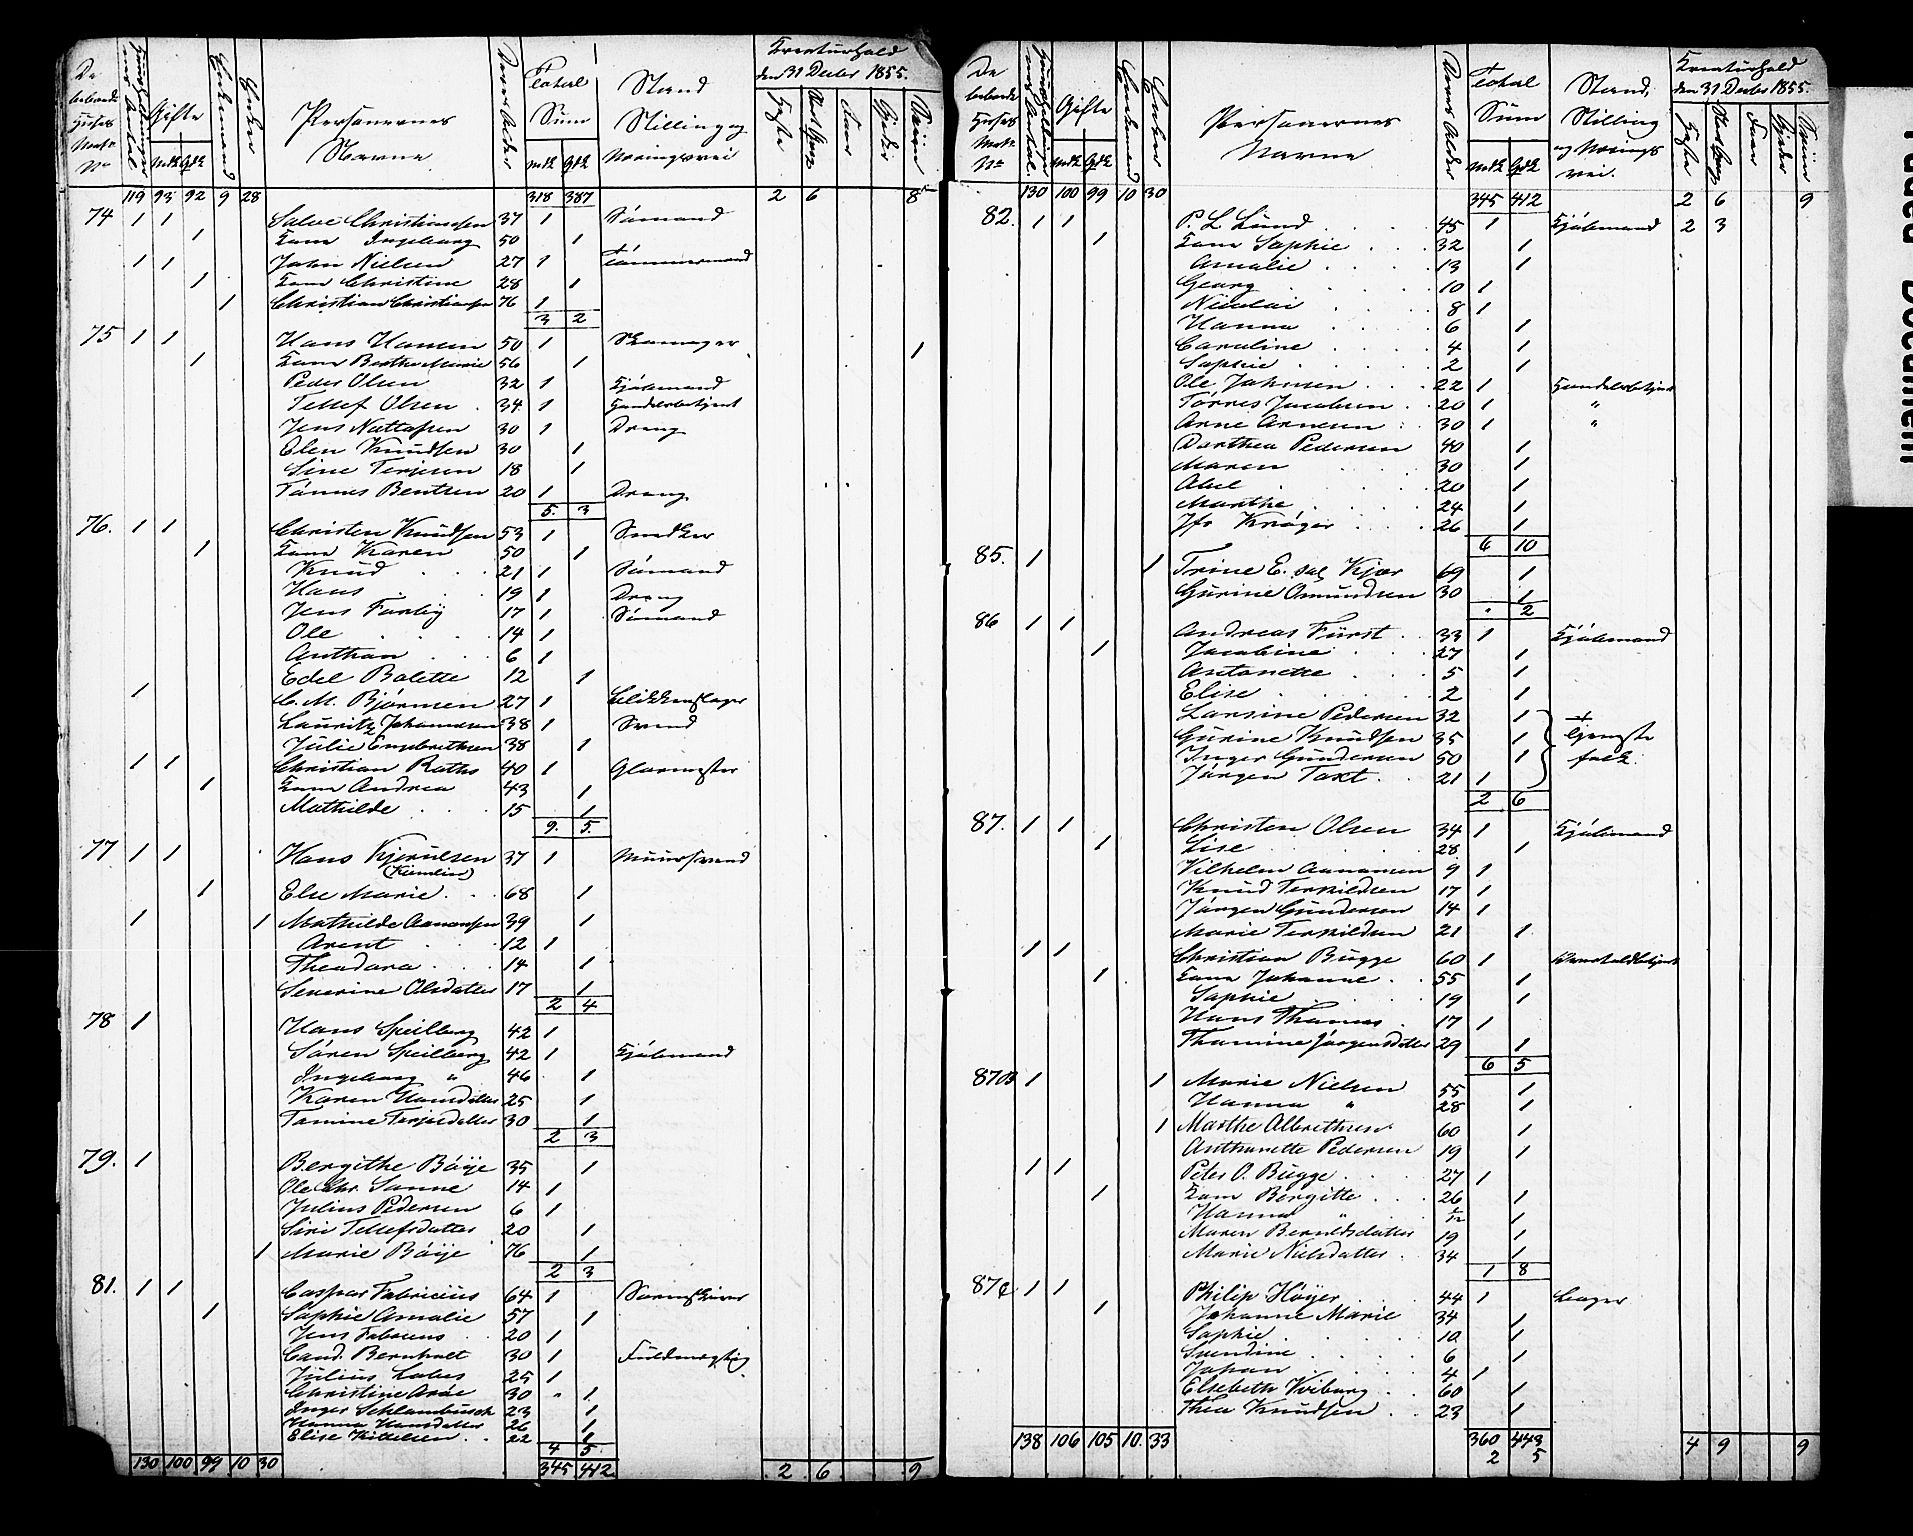 De beboede Huses Matr. No | Huusholdningernes Antal | Gifte Mdk Qdk | Enkemænd | Enker | Personernes Navne | Deres Alder | Total Sum Mdk Qdk | Stand Stilling og Næringsvei | Kreaturhold den 31 Decbr 1855. Heste | Faar | Gjeder | Sviin
119 93 92 9 28 318 387 2 6 8
74 1 1 Salve Christiansen 37 1 Sömand
1 Kone Ingeborg 50 1
1 1 John Nielsen 27 1 Tömmermand
1 Kone Christine 28 1
1 Christian Christiansen 76 1
3 2
75 1 1 Hans Hansen 50 1 Skomager 1
1 Kone Berthe Marie 56 1
Peder Olsen 32 1 Kjöbmand
Tellef Olsen 34 1 Handelsbetjent
Jens Nattassen 30 1 Dreng
Elen Knudsen 30 1
Sine Terjesen 18 1
Tönnes Bentsen 20 1 Dreng
5. 3
76. 1 1 Christen Knudsen 53 1 Snedker
1 Kone Karen 50 1
Knud 21 1 Sömand
Hans 19 1 Dreng
Jens Farby 17 1 Sömand
Ole 14 1
Anthon 6 1
Edel Bolette 12 1
1 C. M. Bjönnen 27 1 Blikkenslager
Lauritz Johannesen 38 1 Svend
Julie Engebrethsen 38 1
1 1 Christian Raths 40 1 Glarmester
1 Kone Andrea 43 1
Mathilde 15 1
9. 5.
77 1 1 Hans Kjerulsen 37 1 Muursvend
1 Else Marie 68 1
1 1 Mathilde Aanonsen 39 1
Arent 12 1
Theodora 14 1
Severine Olsdatter 17 1
2 4
78 1 Hans Speilberg 42 1
Sören Speilberg 42 1 Kjöbmand
Ingeborg " 46 1
Karen Hansdatter 25 1
Tomine Terjesdatter 30 1
2 3
79. 1 Bergithe Böije 35 1
Ole Chr. Sanne 14 1
Julius Pedersen 6 1
Siri Tellefsdatter 20 1
1 Marie Böije 76 1
2 3
81. 1 1 Caspar Fabricius 64 1 Sorenskriver
1 Sophie Amalie 57 1
Jens Fabricius 20 1
Cand. Bernholt 30 1 Fuldmægtig
Julius Lobes 25 1
Christine Aröe 30 " 1
Inger Schlambusch 23 1
Hanna Hansdatter 26 1
Elise Kittelsen 22 1
4 5.
130 100 99 10 30 345 412 2 6 9
De beboede Huses Matr. No | Huusholdningernes Antal | Gifte Mdk Qdk | Enkemænd | Enker | Personernes Navne | Deres Alder | Total Sum Mdk Qdk | Stand, Stilling og Nærings vei. | Kreaturhold den 31 Decbr 1855. Heste | Faar | Gjeder | Sviin
130 100 99 10 30 345 412 2 6 9
82. 1 1 P. L. Lund 45 1 Kjöbmand 2 3
1 Kone Sophie 32 1
Amalie 13 1
Georg 10 1
Nicolai 8 1
Hanna 6 1
Caroline 4 1
Sophie 2 1
Ole Johnsen 22 1 Handelsbetjent
Törres Jacobsen 20 1 "
Arne Arnesen 30 1 "
Dorthea Pedersen 40 1
Maren 30 1
Abel 20 1
Marthe 24 1
Jfr Kröger 26 1
6 10
85. 1 1 Trine E. sal Kjær 69 1
Gurine Osmundsen 30 1
. 2
86 1 1 Andreas Fürst 33 1 Kjöbmand
1 Jacobine 27 1
Antonette 5 1
Elise 2 1
Larsine Pedersen 32 1
Gurine Knudsen 35 1 Tjeneste
Inger Gundersen 50 1 folk.
Jörgen Taxt 21 1
2 6
87. 1 1 Christen Olsen 34 1 Kjöbmand
1 Lise 28 1
Vilhelm Aanonsen 9 1
Knud Terkildsen 17 1
Jörgen Gundersen 14 1
Marie Terkildsen 21 1
1 1 Christian Bugge 60 1
1 Kone Johanne 55 1
Sophie 19 1
Hans Thomas 17 1
Thomine Jörgensdatter 29 1
6 5
87B 1 1 Marie Nielsen 55 1
Hanna " 28 1
1 Marthe Albrethsen 60 1
Anthonette Pedersen 19 1
1 1 Peter O. Bugge 27 1
1 Kone Bergitte 26 1
Hanna " 1
Maren Berntsdatter 19 1
Marie Nielsdatter 34 1
1 8
87C 1 1 Philip Höyer 44 1 Bager
1 Johanne Marie 34 1
Sophie 10 1
Svendine 6 1
Johan 4 1
Elsebeth Kviborg 60 1
Thea Knudsen 23 1
138 106 105 10. 33 360 443 4 9 9
2 5